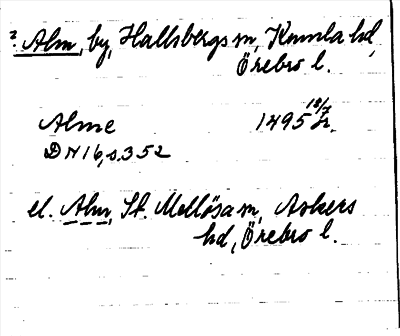 ? Alm, by, Hallsbergs m, Kumla hd,
Örebro l.
Alme 1495 18/7
DN 16, s. 352
el. Alm, St. Mellösa m, Askers
hd, Örebro l.